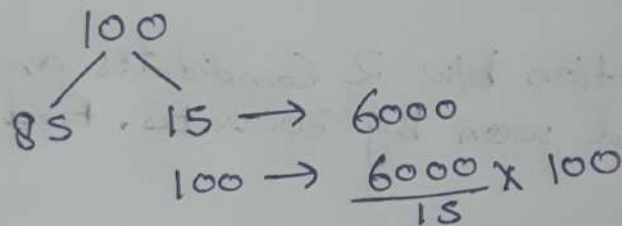 100
85 15 → 6000
100 → 6000/15 × 100